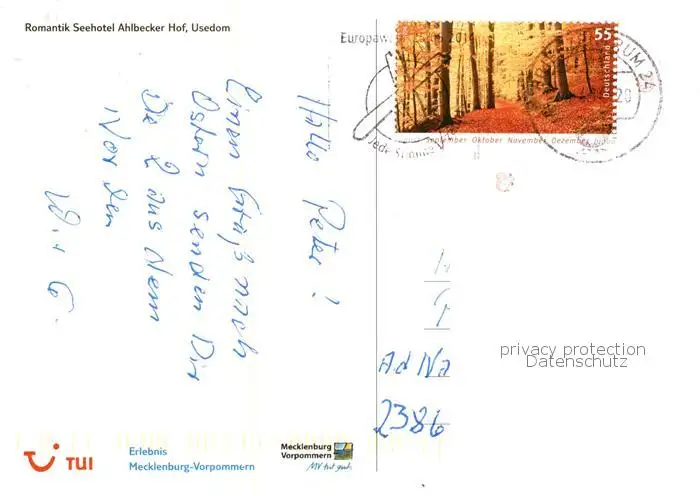 Romantik Seehotel Ahlbecker Hof, Usedom
Hallo Peter!
Einen Gruß nach
Ostern senden Dir
Die 2 aus dem
Norden
W. + G.
Jede Stimme
55
Deutschland
September Oktober November Dezember
24
privacy protection
Datenschutz
Ad Na
2386
TUI
Erlebnis
Mecklenburg-Vorpommern
Mecklenburg
Vorpommern
MV tut gut.